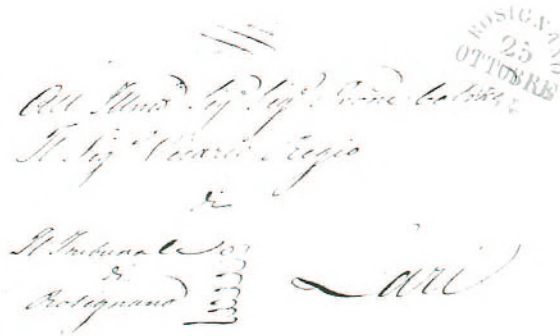 ROSIGNANO
25
OTTOBRE
All' Illmo Sigr Sigr Prone
Il Sigr Vicario Regio
di
Lari
Il Tribunale
di
Rosignano